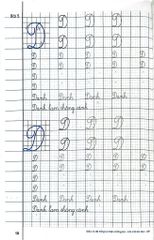 Bài 5
Đ Đ Đ Đ
Đ Đ Đ
Đ Đ Đ Đ
Đ
Đ
Đ
Danh Danh Danh Danh
Danh
Danh lam thắng cảnh
Đ Đ Đ Đ
Đ Đ Đ
Đ Đ Đ Đ
Đ
Đ
Đ
Danh Danh Danh Danh
Danh
Danh lam thắng cảnh